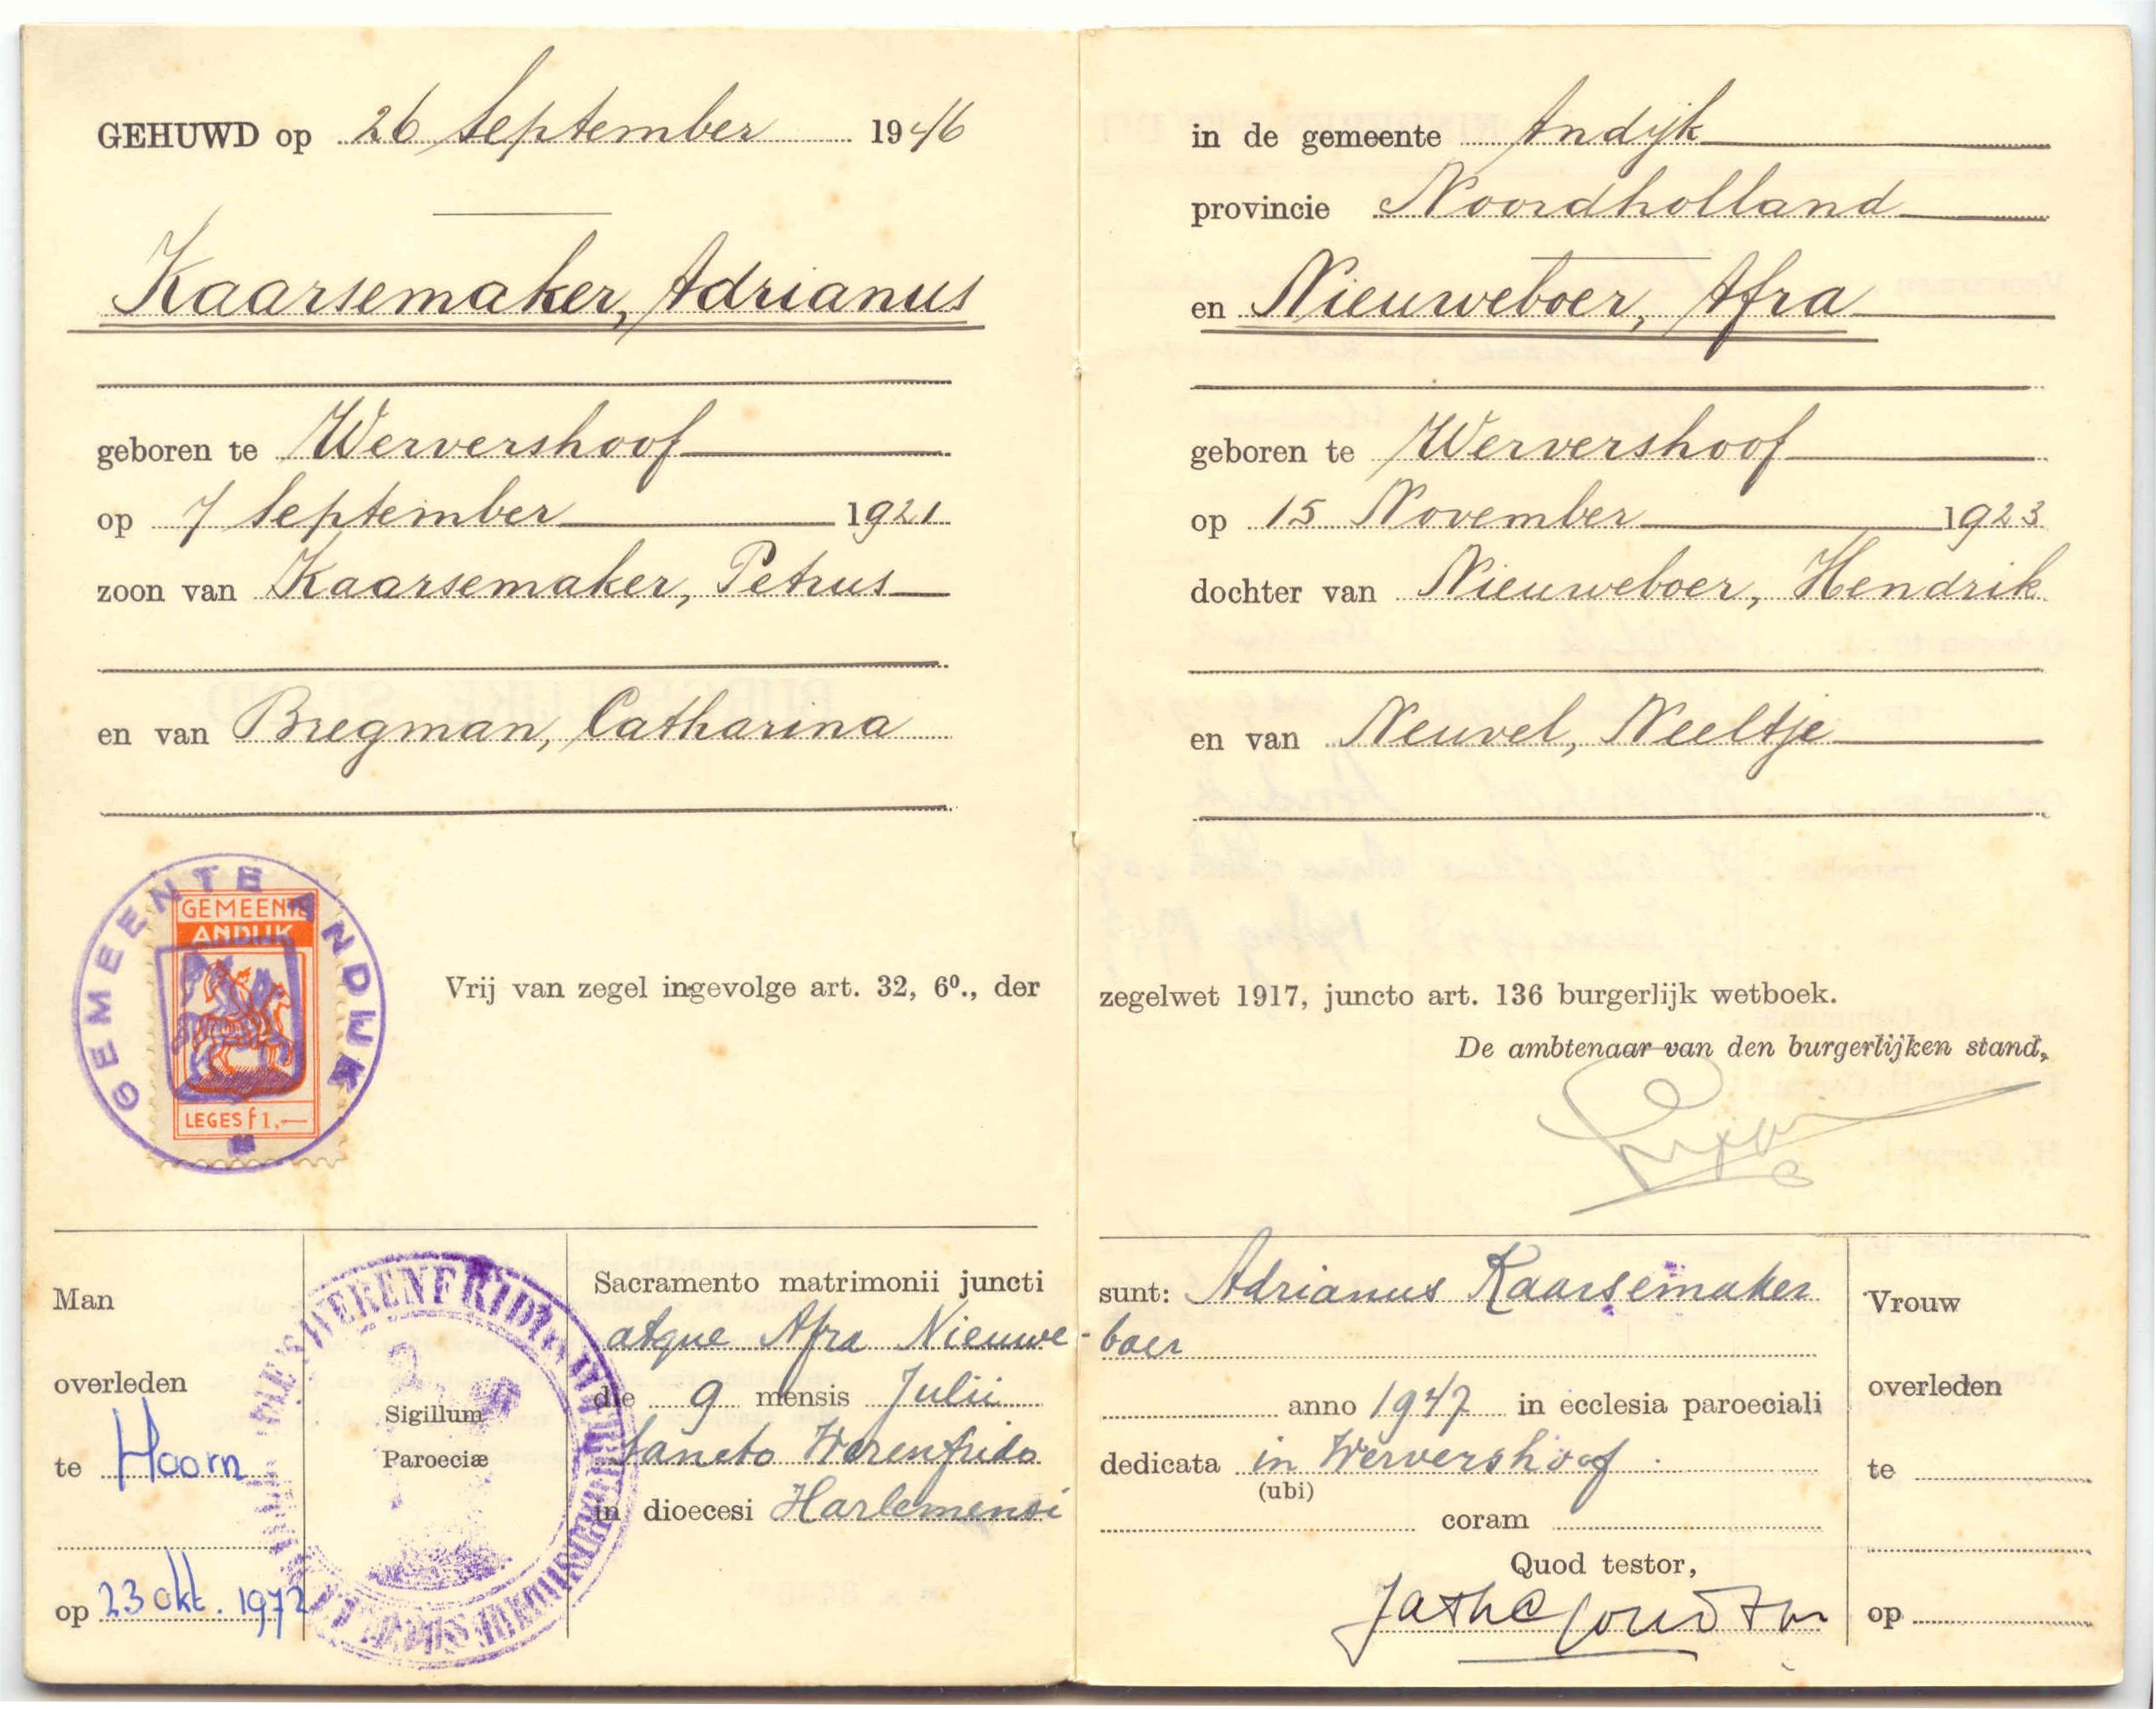 GEHUWD op 26 September 1946
Kaarsemaker, Adrianus
geboren te Wervershoof
op 7 September 1921
zoon van Kaarsemaker, Petrus
en van Bregman, Catharina
GEMEENTE ANDIJK
GEMEENTE
ANDIJK
LEGES f 1.—
Vrij van zegel ingevolge art. 32, 6⁰., der
Man
overleden
te Hoorn
op 23 okt. 1972
WERENFRIDI
Sigillum
Paroeciæ
Sacramento matrimonii juncti
atque Afra Nieuwe-
die 9 mensis Julii
Sancto Werenfrido
in dioecesi Harlemensi
in de gemeente Andijk
provincie Noordholland
en Nieuweboer, Afra
geboren te Wervershoof
op 15 November 1923
dochter van Nieuweboer, Hendrik
en van Neuvel, Neeltje
zegelwet 1917, juncto art. 136 burgerlijk wetboek.
De ambtenaar van den burgerlijken stand,
sunt: Adrianus Kaarsemaker
boer
anno 1947 in ecclesia paroeciali
dedicata in Wervershoof
(ubi)
coram
Quod testor,
Vrouw
overleden
te
op